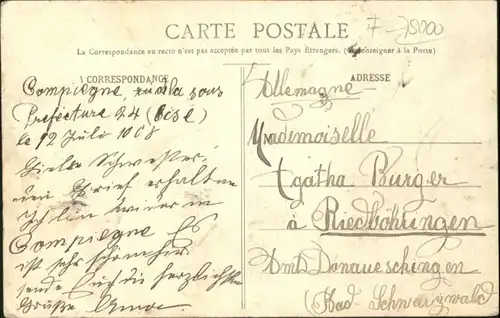 CARTE POSTALE
F - 75000
La Correspondance au recto n'est pas acceptée par tous les Pays Étrangers. (Se renseigner à la Poste)
CORRESPONDANCE
Compiegne, rue la sous
Prefecture 24 (Oise)
le 12 Juli 1908
Liebe Schwester!
den Brief erhalten
Ich bin wieder in
Compiegne Es
ist sehr schön hier
sende Euch die herzlichsten
Grüße
ADRESSE
Allemagne
Mademoiselle
Agatha Burger
à Riedböhringen
Amt Donaueschingen
(Bad-Schwarzwald